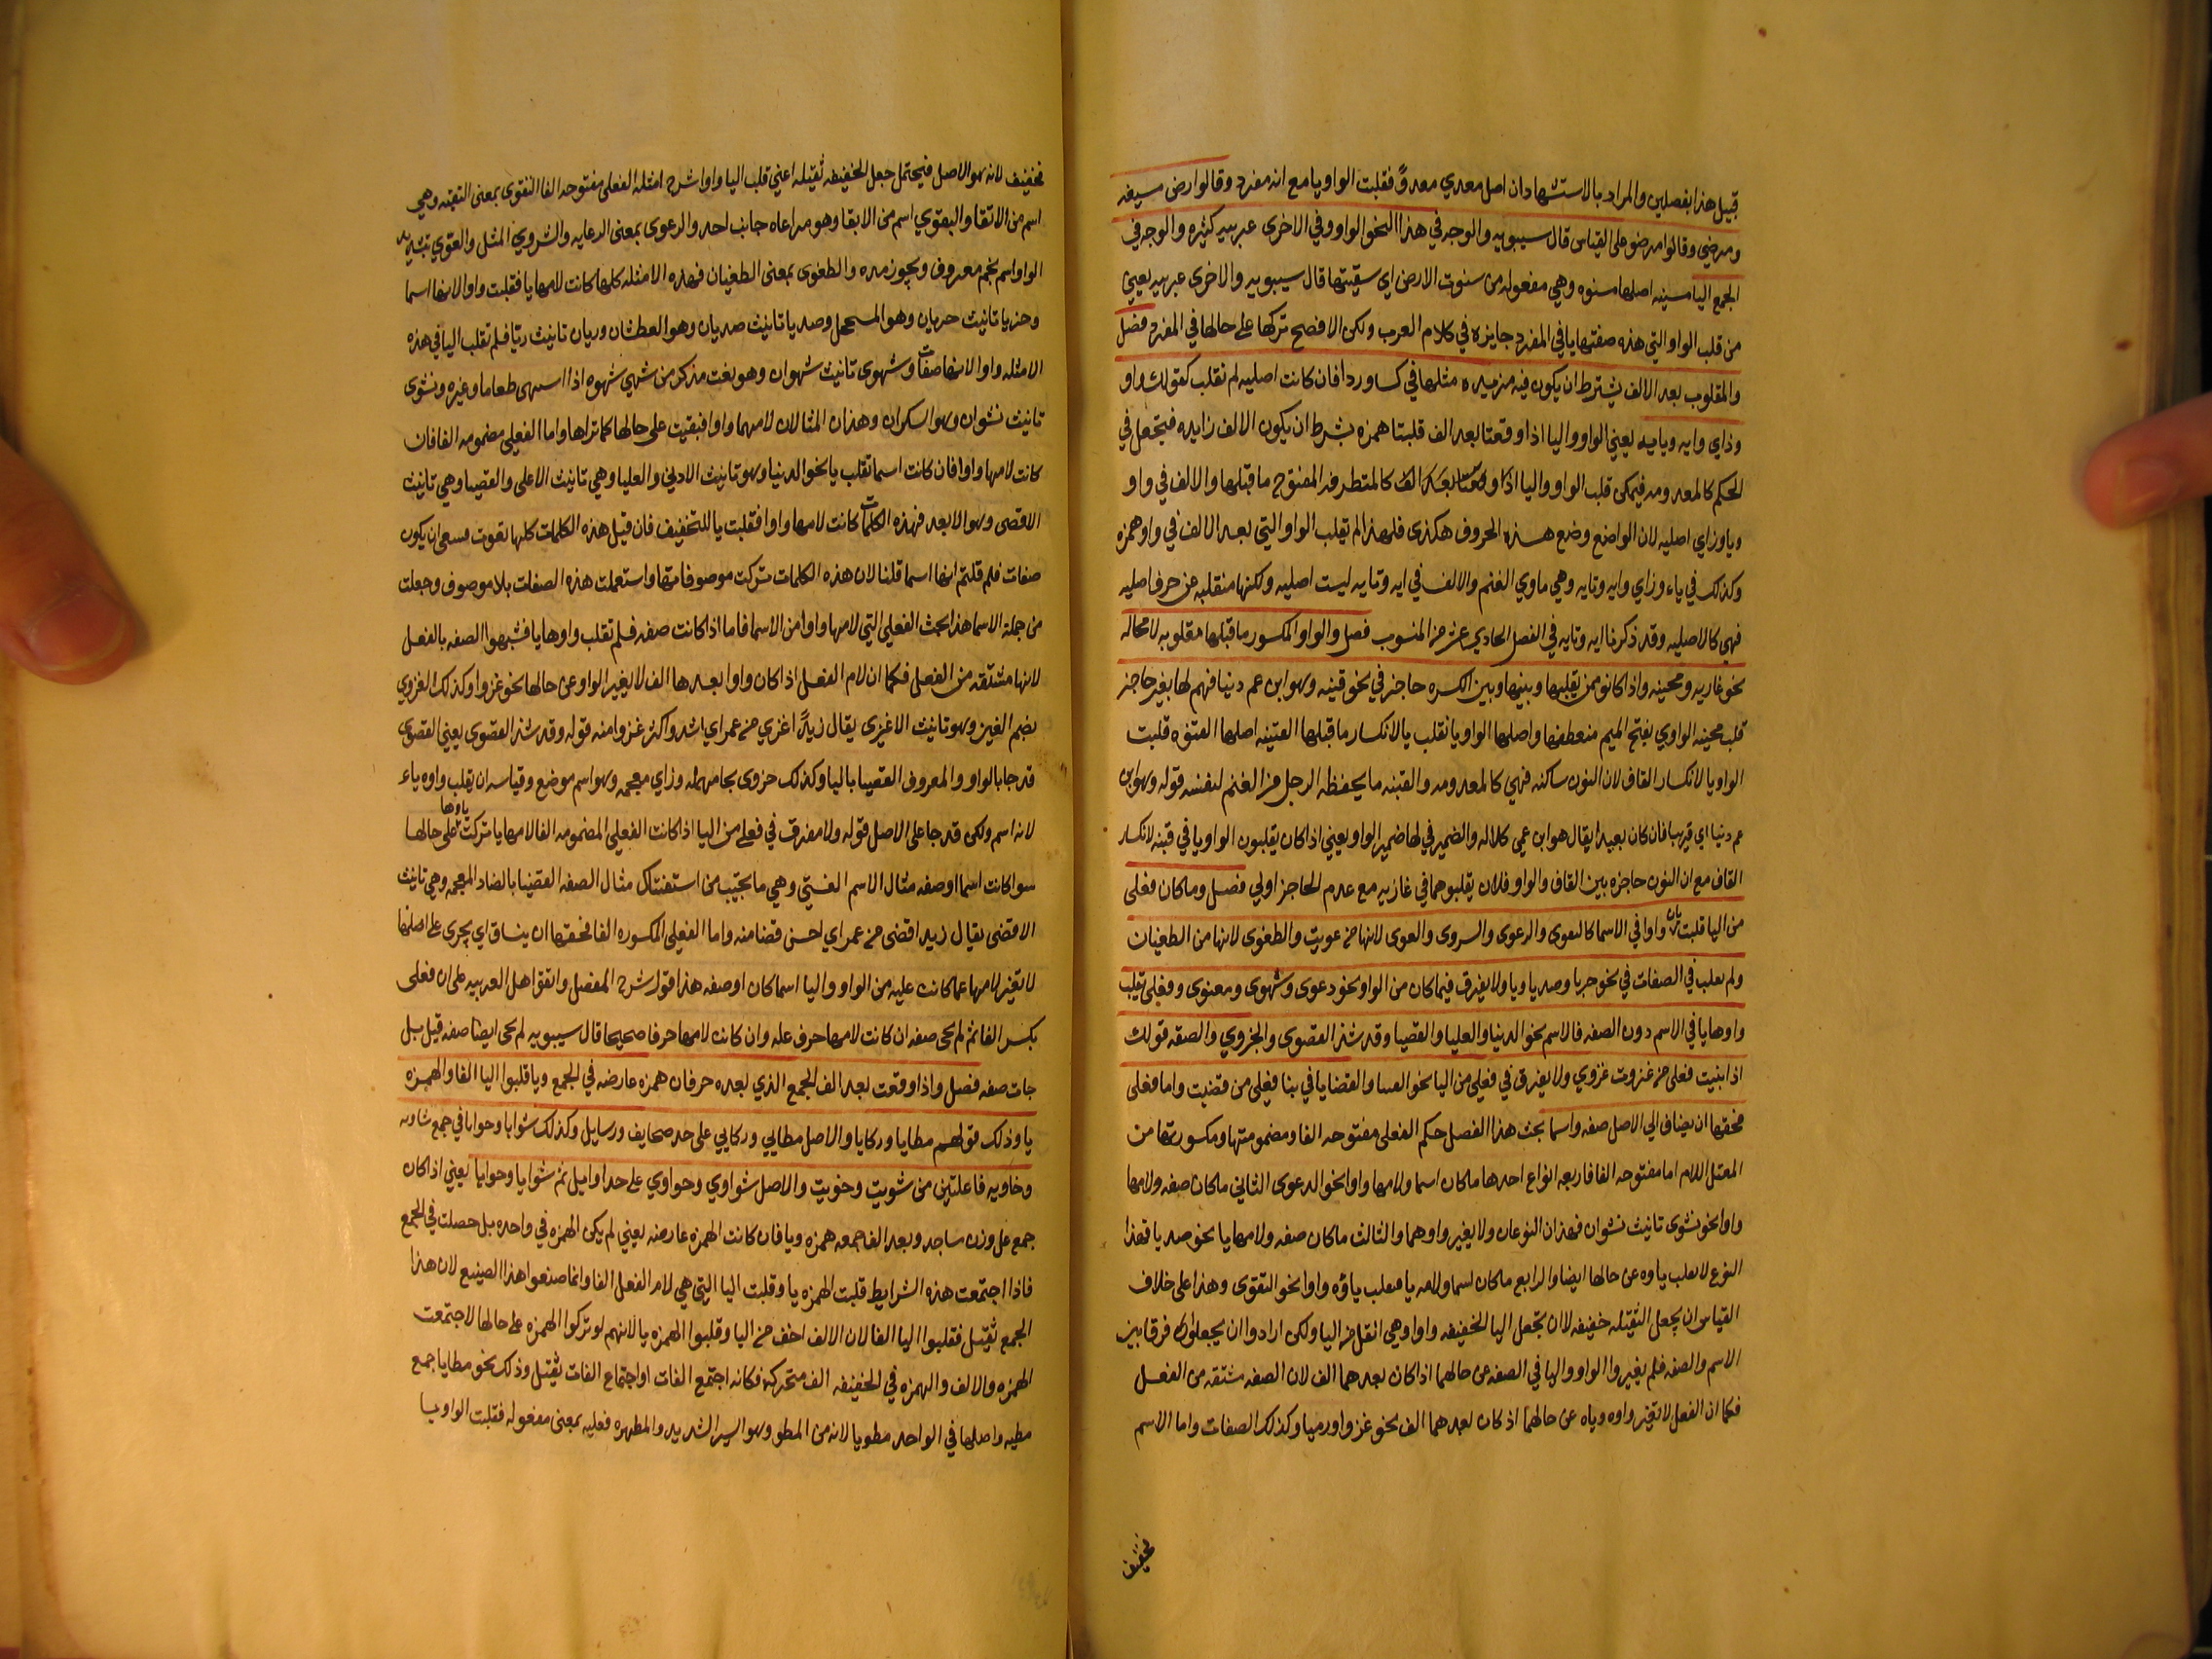 قبيل هذا بفصلين والمراد بالاستشهاد ان اصل معدي معدوٌ فقلبت الواو يا مع انه مفرد وقالوا ارض مسنيه
ومرضي وقالوا مرضو على القياس قال سيبويه والوجه في هذا النحو الواو وفي الاخرى عربيه كثيره والوجه في
الجمع اليا مسنيه اصلها مسنوه وهي مفعوله من سنوت الارض اي سقيتها قال سيبويه والاخرى عربيه يعني
من قلب الواو التي هذه صفتها يا في المفرد جايزه في كلام العرب ولكن الافصح تركها على حالها في المفرد فصل
والمقلوب بعد الالف يشترط ان يكون فيه مزيده مثلها في كسا وردا فان كانت اصليه لم تقلب كقولك واو
وزاي وايه وثايه يعني الواو واليا اذا وقعتا بعد الف قلبتا همزه بشرط ان يكون الالف زايده فيجعل في
الحكم كالمعدومه فيمكن قلب الواو واليا اذا وقعتا بعد الف كالمتطرفه المفتوح ما قبلها والالف في واو
وياو زاي اصليه لان الواضع وضع هذه الحروف هكذى فلهذا لم يقلب الواو التي بعد الالف في واو همزه
وكذلك في ياء وزاي وايه وثايه وهي ماوي الغنم والالف في ايه وثايه ليست اصليه ولكنها منقلبه عن حرف اصليه
فهي كالاصليه وقد ذكرنا ايه وثايه في الفصل الحادي عشر من المنسوب فصل والواو المكسور ما قبلها مقلوبه لا محاله
نحو غازيه ومحنيه واذا كانو ممن يقلبها وبينها وبين الكسره حاجز في نحو قنيه وهو ابن عم دنيا فهم لها بغير حاجز
قلب محنيه الوادي بفتح الميم منعطفها واصلها الواو يا تقلب يا لانكسار ما قبلها القنيه اصلها القنوه قلبت
الواو يا لانكسار القاف لان النون ساكنه فهي كالمعدومه والقنيه ما يحفظه الرجل من الغنم لنفسه قوله وهو ابن
عم دنيا اي قريبا فان كان بعيدا يقال هو ابن عمي كلاله والضمير في لها ضمير الواو يعني اذا كان يقلبون الواو يا في قنيه لانكسار
القاف مع ان النون حاجزه بين القاف والواو فلان يقلبوهما في غازيه مع عدم الحاجز اولي فصل وما كان فعلى
من اليا قلبت ياه واوا في الاسما كالتقوى والرعوى والسروى والعوى لانها من عويت والطغوى لانها من الطغيان
ولم تقلب في الصفات في نحو خزيا وصديا وريا ولا يفرق فيما كان من الواو نحو دعوى وشهوى ومعنوى وفعلى تقلب
واوها يا في الاسم دون الصفه فالاسم نحو الدنيا والعليا والقصيا وقد شذ القصوى والجزوي والصفه قولك
اذا بنيت فعلى من غزوت غزوي ولا يفرق في فعلى من اليا نحو الفتيا والقضيا في بنا فعلى من قضيت واما فعلى
فحقها ان يضاف الي الاصل صفه واسما بحث هذا الفصل حكم الفعلى مفتوحه الفا ومضمومتها ومكسورتها من
المعتل اللام اما مفتوحه الفا فاربعه انواع احدها ما كان اسما ولامها واوا نحو الدعوى الثاني ما كان صفه ولامها
واوا نحو نشوى تانيث نشوان فهذان النوعان ولا يغير واوهما والثالث ما كان صفه ولامها يا نحو صديا فهذا
النوع لا تقلب ياوه عن حالها ايضا والرابع ما كان اسما ولامه يا فيقلب ياؤه واوا نحو التقوى وهذا على خلاف
القياس ان يجعل الثقيله خفيفه لا ان تجعل اليا الخفيفه واوا وهي اثقل من اليا ولكن ارادوا ان يجعلوا فرقا بين
الاسم والصفه فلم يغيروا الواو واليا في الصفه عن حالهما اذا كان بعدهما الف لان الصفه مشتقه من الفعل
فكما ان الفعل لا تغير واوه وياه عن حالهما اذ كان بعدهما الف نحو غزوا ورميا وكذلك الصفات واما الاسم
تخفيف
تخفيف لانه هو الاصل فيحتمل جعل الخفيفه ثقيله اعني قلب اليا واوا شرح امثله الفعلى مفتوحه الفا التقوى بمعنى التقيه وهي
اسم من الاتقا والبقوي اسم من الابقا وهو مراعاه جانب احد والرعوى بمعنى الرعايه والشروي المثل والعوي بتشديد
الواو اسم نجم معروف ويجوز مده والطغوى بمعنى الطغيان فهذه الامثله كلها كانت لامها يا فقلبت واوا لانها اسما
وخزيا تانيث خزيان وهو المستحي وصديا تانيث صديان وهو العطشان وريان تانيث ريّا فلم تقلب اليا في هذه
الامثله واوا لانها صفات وشهوى تانيث شهوان وهو نعت مذكر من شهي شهوه اذا اشتهى طعاما وغيره ونشوى
تانيث نشوان وهو السكران وهذان المثالان لامهما واوا فبقيت على حالها كما تراها واما الفعلى مضمومه الفا فان
كانت لامها واوا فان كانت اسما تقلب يا نحو الدنيا وهو تانيث الادني والعليا وهي تانيث الاعلى والقصيا وهي تانيث
الاقصى وهو الابعد فهذه الكلمات كانت لامها واوا فقلبت يا للتخفيف فان قيل هذه الكلمات كلها نعوت فينبغي ان يكون
صفات فلم قلتم انها اسما قلنا لان هذه الكلمات تركت موصوفاتها واستعملت هذه الصفات بلا موصوف وجعلت
من جملة الاسما هذا بحث الفعلي التي لامها واوا من الاسما فاما اذا كانت صفه فلم تقلب واوها يا فشبهوا الصفه بالفعل
لانها مشتقه من الفعل فكما ان لام الفعل اذا كان واوا بعدها الف لا يغير الواو عن حالها نحو غزوا وكذلك الغزوي
بضم الغين وهو تانيث الاغزى يقال زيدٌ اغزي من عمر اي اشد واكثر غزوا منه قوله وقد شذ القصوى يعني القصوى
قد جا بالواو والمعروف القصيا باليا وكذلك حزوى بحا مهمله وزاي معجمه وهو اسم موضع وقياسه ان يقلب واوه ياء
لانه اسم ولكن قد جا على الاصل قوله ولا يفرق في فعلى من اليا اذا كانت الفعلي المضمومه الفا لامها يا تركت ياوها على حالها
سوا كانت اسما او صفه مثال الاسم الفتيي وهي ما يجيب من استفتاك مثال الصفه القضيا بالضاد المعجمه وهي تانيث
الاقضى يقال زيد اقضى من عمر اي احسن قضا منه واما الفعلي المكسوره الفا فحقها ان ينساق اي يجري على اصلها
لا تغير لامها عما كانت عليه من الواو واليا اسما كان او صفه هذا قول شرح المفصل واتفق اهل العربيه على ان فعلى
بكسر الفا ثم لم يجى صفه ان كانت لامها حرف عله وان كانت لامها حرفا صحيحا قال سيبويه لم يجى ايضا صفه قيل بل
جات صفه فصل واذا وقعت بعد الف الجمع الذي بعده حرفان همزه عارضه في الجمع ويا قلبوا اليا الفا والهمزه
يا وذلك قولهم مطايا وركايا والاصل مطائي وركايي على حد صحايف ورسايل وكذلك شوايا وحوايا في جمع شاويه
وحاويه فاعلتين من شويت وحويت والاصل شواوي وحواوي على حد اوايل ثم شوايا وحوايا يعني اذا كان
جمع على وزن مساجد وبعد الف جمعه همزه ويا فان كانت الهمزه عارضه يعني لم يكن الهمزه في واحده بل حصلت في الجمع
فاذا اجتمعت هذه الشرايط قلبت الهمزه يا وقلبت اليا التي هي لام الفعل الفا وانما صنعوا هذا الصنيع لان هذا
الجمع ثقيل فقلبوا اليا الفا لان الالف اخف من اليا وقلبوا الهمزه يا لانهم لو تركوا الهمزه على حالها لاجتمعت
الهمزه والالف والهمزه في الحقيقه الف متحركه فكانه اجتمع الفات او اجتماع الفات ثقيل وذلك نحو مطايا جمع
مطيه واصلها في الواحد مطويا لانه من المطو وهو السير الشديد والمطيه فعليه بمعنى مفعوله فقلبت الواو يا